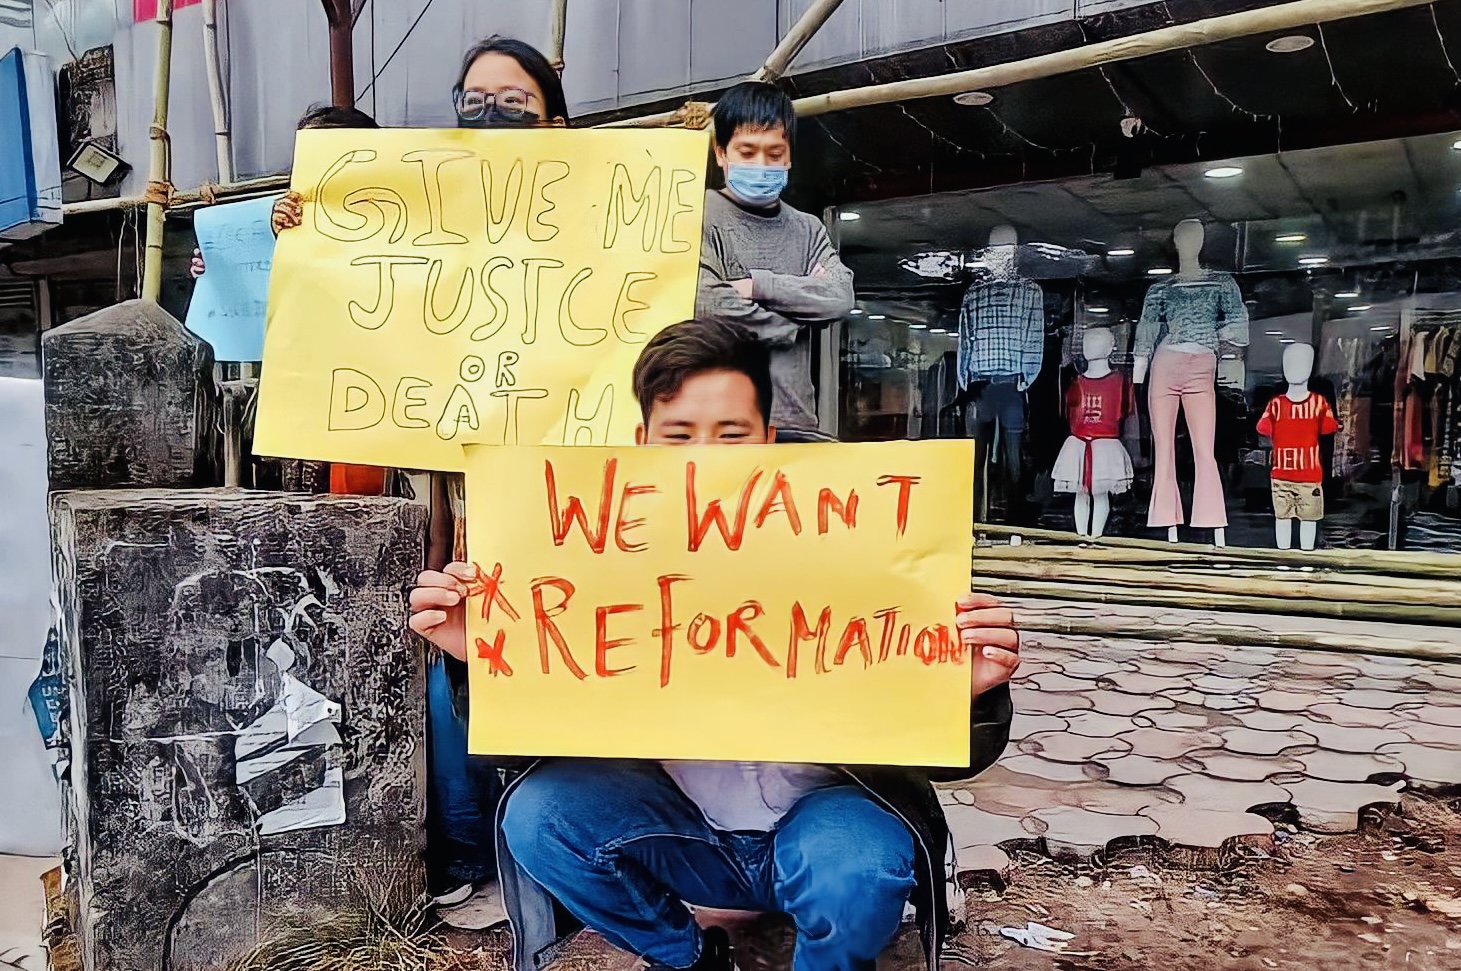 GIVE ME
JUSTCE
OR
DEATH
WE WANT
REFORMATION